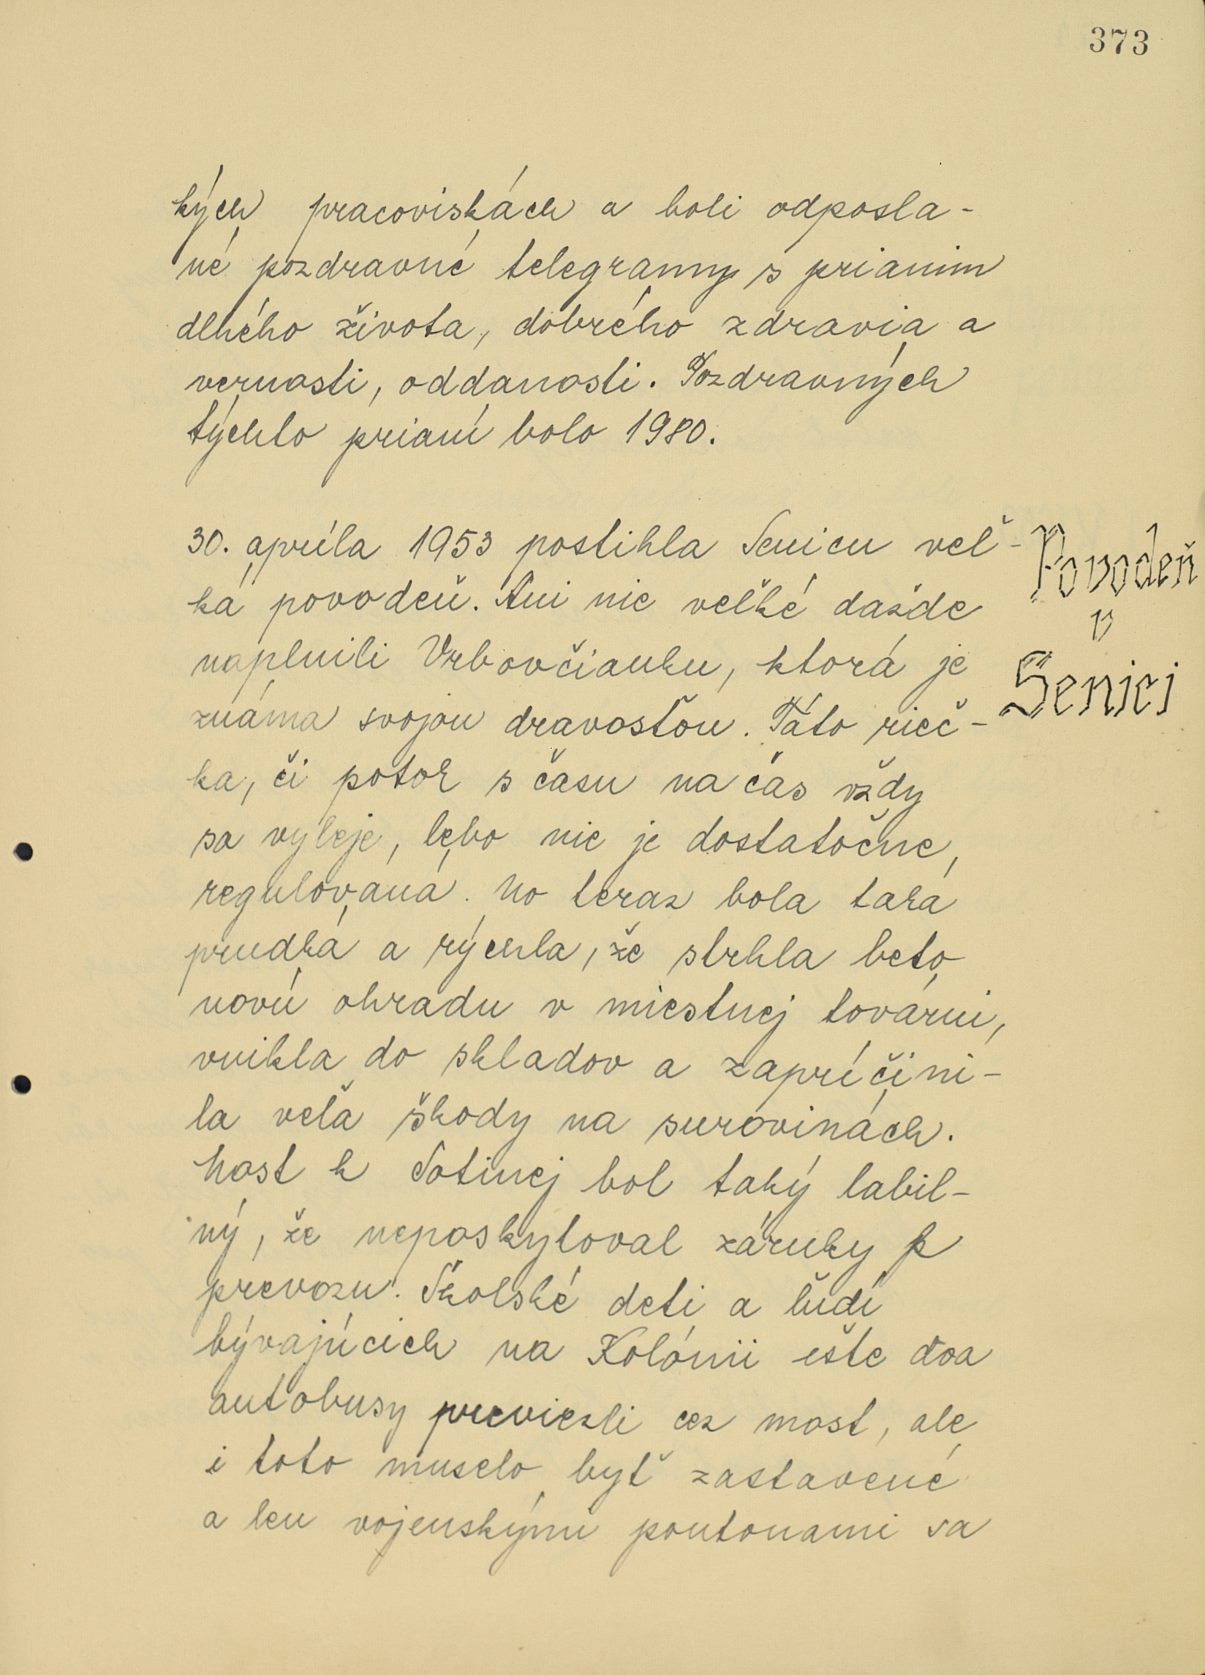 373
kých pracoviskách a boli odposla-
né pozdravné telegramy s prianim
dlhého života, dobrého zdravia a
vernosti, oddanosti. Pozdravných
týchto prianí bolo 1980.
30. apríla 1953 postihla Senicu veľ-
ká povodeň. Ani nie veľké dažde
naplnili Vrbovčianku, ktorá je
známa svojou dravosťou. Táto rieč-
ka, či potok s času na čas vždy
sa vyleje, lebo nie je dostatočne,
regulovaná. No teraz bola taká
prudká a rýchla, že strhla beto
novú ohradu v miestnej továrni,
vnikla do skladov a zapríčini-
la veľa škody na surovinách.
Most k Sotinej bol taký labil-
ný, že neposkytoval záruky k
prevozu. Školské deti a ľudí
bývajúcich na Kolónii ešte dva
autobusy previezli cez most, ale
i toto muselo byť zastavené
a len vojenskými pontonami sa
Povodeň
v
Senici